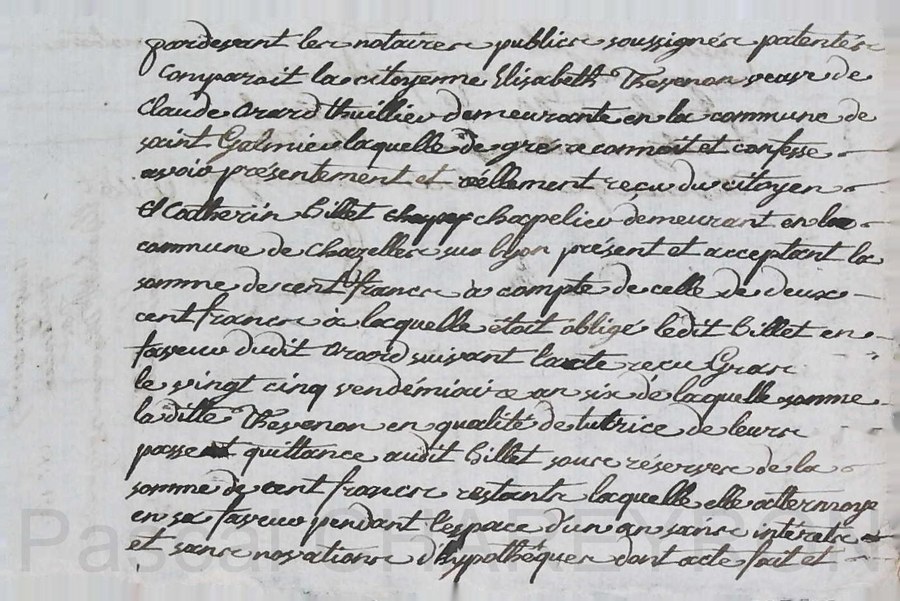 pardevant les notaires publics soussignés patentés
Comparait la citoyenne Elisabeth Thevenon veuve de
Claude Orard thuillier demeurante en la commune de
saint Galmier laquelle de gré reconnoit et confesse
avoir présentement et réellement reçu du citoyen
Catherin billet chapelier demeurant en la
commune de chazelles sur lyon présent et acceptant la
somme de cent francs à compte de celle de deux
cent francs à laquelle étoit obligé ledit billet en
faveur dudit Orard suivant l'acte reçu Gras
le vingt cinq vendémiaire an six de laquelle somme
la ditte Thevenon en qualité de tutrice de leurs
passe quittance audit billet sous réserves de la
somme de cent francs restants laquelle elle attermoye
en sa faveur pendant l'espace d'un an sains intérets
et sans novations d'hypothèques dont acte fait et
Pascal CHAPEYRON